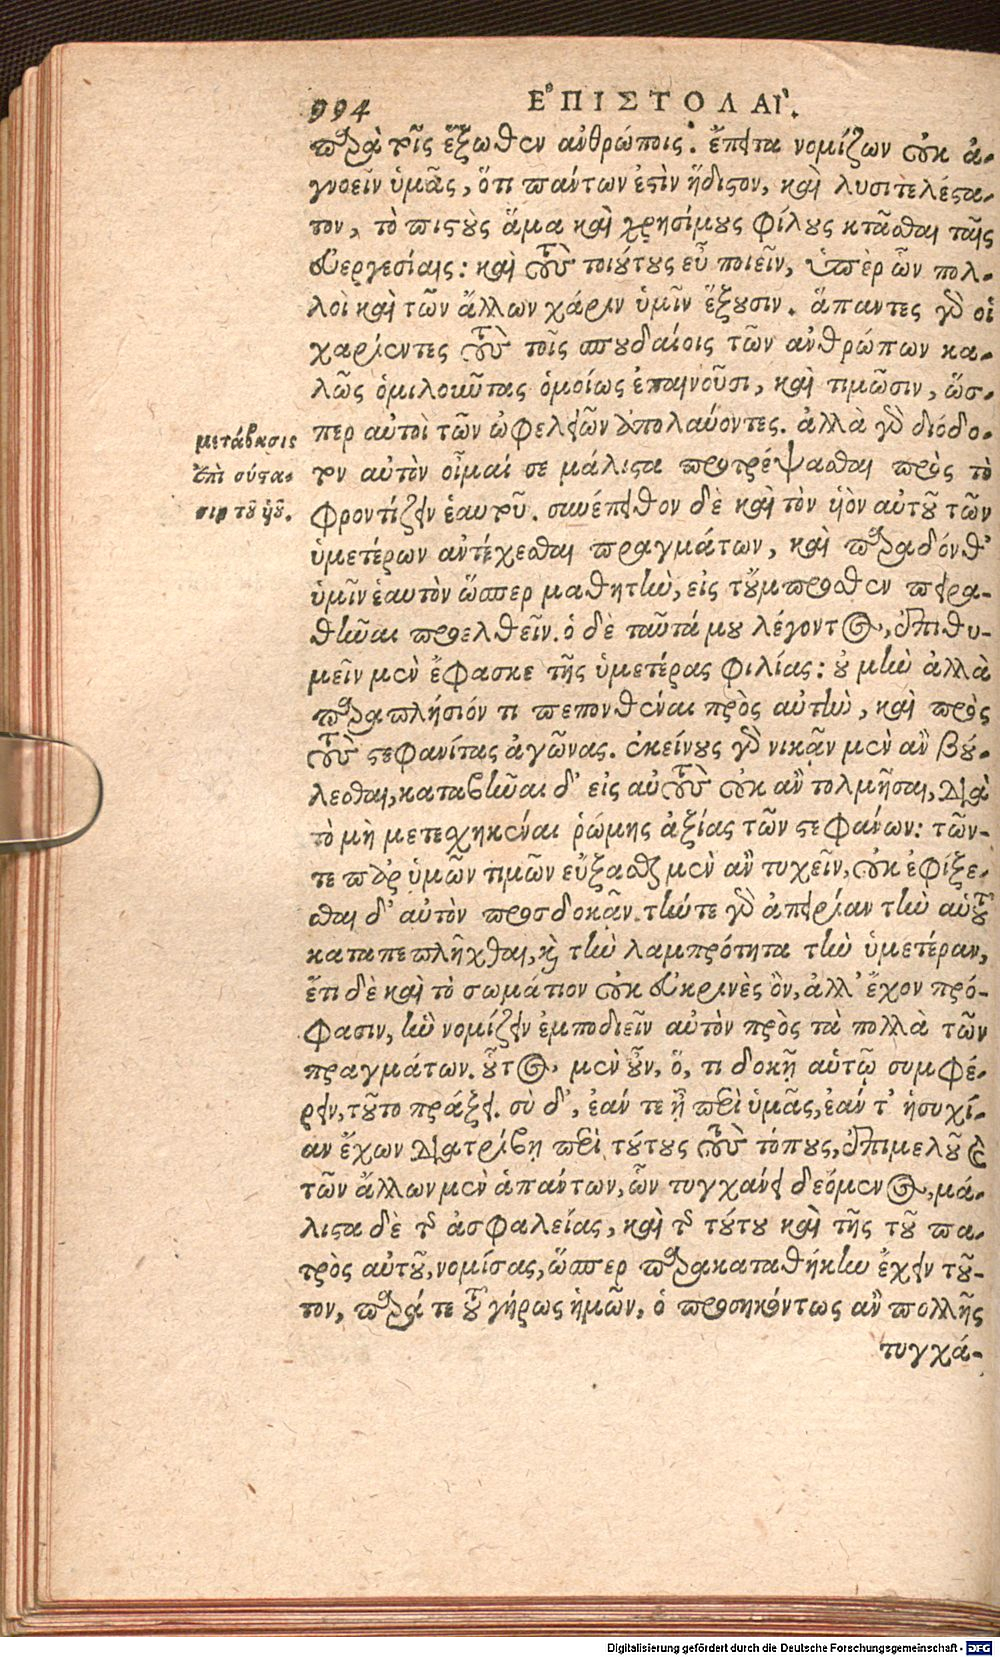 994 ΕΠΙΣΤΟΛΑΙ.
παρὰ τοῖς ἔξωθεν ἀνθρώποις. ἔπειτα νομίζων οὐκ ἀ-
γνοεῖν ὑμᾶς, ὅτι πάντων ἐστὶν ἥδιστον, καὶ λυσιτελέστα-
τον, τὸ πιστοὺς ἅμα καὶ χρησίμους φίλους κτᾶσθαι ταῖς
εὐεργεσίαις: καὶ τοὺς τοιούτους εὖ ποιεῖν, ὑπὲρ ὧν πολ-
λοὶ καὶ τῶν ἄλλων χάριν ὑμῖν ἕξουσιν. ἅπαντες γὰρ οἱ
χαρίεντες τοὺς τοῖς σπουδαίοις τῶν ἀνθρώπων κα-
λῶς ὁμιλοῦντας ὁμοίως ἐπαινοῦσι, καὶ τιμῶσιν, ὥσ-
περ αὐτοὶ τῶν ὠφελειῶν ἀπολαύοντες. ἀλλὰ γὰρ διόδο-
τον αὐτὸν οἶμαί σε μάλιστα προτρέψασθαι πρὸς τὸ
φροντίζειν ἑαυτοῦ. συνέπειθον δὲ καὶ τὸν υἱὸν αὐτοῦ τῶν
ὑμετέρων ἀντέχεσθαι πραγμάτων, καὶ παραδόνθ'
ὑμῖν ἑαυτὸν ὥσπερ μαθητὴν, εἰς τοὔμπροσθεν πειρα-
θῆναι προελθεῖν. ὁ δὲ ταῦτά μου λέγοντος, ἐπιθυ-
μεῖν μὲν ἔφασκε τῆς ὑμετέρας φιλίας: οὐ μὴν ἀλλὰ
παραπλήσιόν τι πεπονθέναι πρὸς αὐτὴν, καὶ πρὸς
τοὺς στεφανίτας ἀγῶνας. ἐκείνους γὰρ νικᾷν μὲν ἂν βού-
λεσθαι, καταβῆναι δ' εἰς αὐτοὺς οὐκ ἂν τολμῆσαι, διὰ
τὸ μὴ μετεσχηκέναι ῥώμης ἀξίας τῶν στεφάνων: τῶν-
τε παρ' ὑμῶν τιμῶν εὔξασθαι μὲν ἂν τυχεῖν, οὐκ ἐφίξε-
σθαι δ' αὐτὸν προσδοκᾷν. τήν τε γὰρ ἀπειρίαν τὴν αὑτοῦ
καταπεπλῆχθαι, καὶ τὴν λαμπρότητα τὴν ὑμετέραν,
ἔτι δὲ καὶ τὸ σωμάτιον οὐκ εὐκρινὲς ὂν, ἀλλ' ἔχον πρό-
φασιν, ἣν νομίζειν ἐμποδιεῖν αὐτὸν πρὸς τὰ πολλὰ τῶν
πραγμάτων. οὗτος μὲν οὖν, ὅ, τι δοκῇ αὑτῷ συμφέ-
ρειν, τοῦτο πράξει. σὺ δ', ἐάν τε ᾖ περὶ ὑμᾶς, ἐάν τ' ἡσυχί-
αν ἔχων διατρίβῃ περὶ τούτους τοὺς τόπους, ἐπιμελοῦ καὶ
τῶν ἄλλων μὲν ἁπάντων, ὧν τυγχάνει δεόμενος, μά-
λιστα δὲ τῆς ἀσφαλείας, καὶ τῆς τούτου καὶ τῆς τοῦ πα-
τρὸς αὐτοῦ, νομίσας, ὥσπερ παρακαταθήκην ἔχειν τοῦ-
τον, παρά τε τοῦ γήρως ἡμῶν, ὃ προσηκόντως ἂν πολλῆς
τυγχά-
μετάβασις
ἐπὶ σύστα-
σιν τοῦ υἱοῦ.
Digitalisierung gefördert durch die Deutsche Forschungsgemeinschaft - DFG